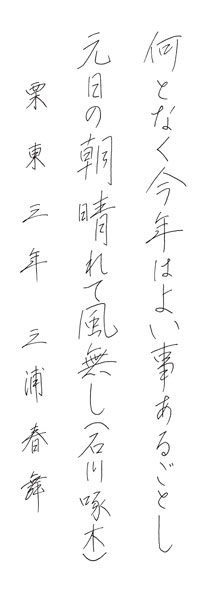 何となく今年はよい事あるごとし
元日の朝晴れて風無し(石川啄木)
栗東三年 三浦春舞